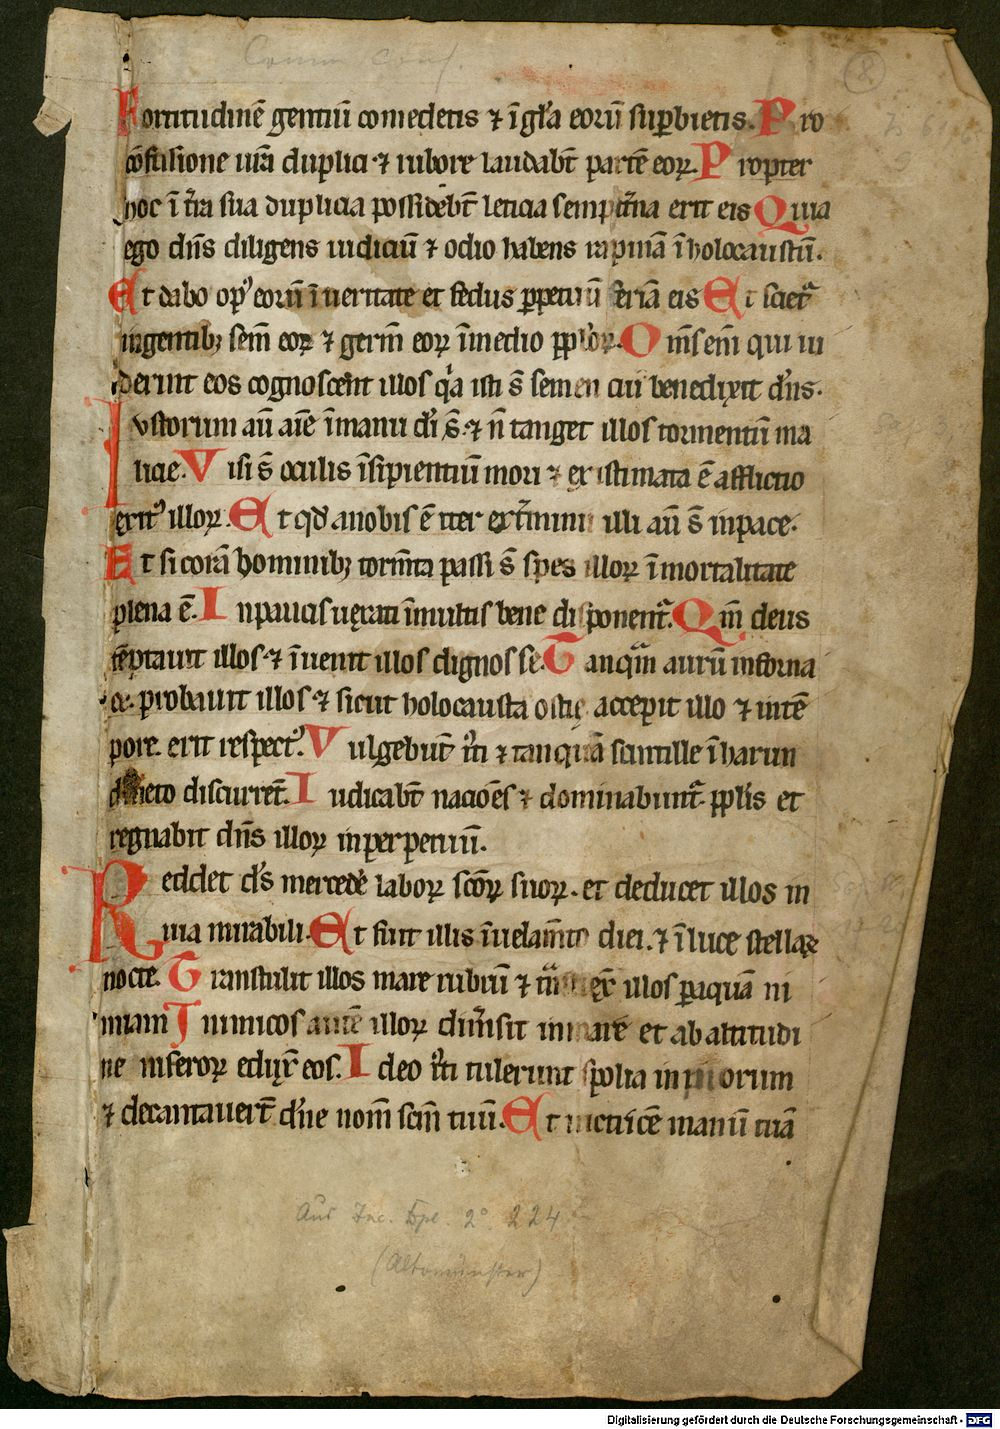 Comm conf.
8
Fortitudinē gentiū comedetis ⁊ ī gl̄a eorū sup̄bietis. Pro
cōfusione ur̄a duplici ⁊ rubore laudabt̄ partē eoꝝ. Propter
hoc ī tr̄a sua duplicia possidebt̄ leticia sempit̄na erit eis Quia
ego dn̄s diligens iudiciū ⁊ odio habens rapinā ī holocaustū.
Et dabo opꝰ eorū ī ueritate et fedus ꝑpetuū feriā eis Et sciet᷑
ingentibꝫ sem̄ eoꝝ ⁊ germ̄ eoꝝ ī medio ppl̓oꝝ. Om̄s em̄ qui ui
derint eos cognoscent illos qͥa isti s̄ semen cui benedixit dn̄s.
Iustorum aū aīe ī manu dī s̄. ⁊ n̄ tanget illos tormentū ma
licie. Visi s̄ oculis īsipientiū mori ⁊ existimata ē afflictio
exitꝰ illoꝝ. Et qd̄ anobis ē iter ext̄minii illi aū s̄ inpace.
Et si corā hominibꝫ torm̄ta passi s̄ spes illoꝝ ī mortalitate
plena ē. In paucis uexati ī multis bene disponent᷑. Qm̄ deus
tēptauit illos ⁊ ī uenit illos dignos se. Tanqͣm aurū inforna
ce probauit illos ⁊ sicut holocausta ostię accepit illo ⁊ intē
pore erit respectꝰ. Vulgebūt iͭti ⁊ tanquā scintille ī harun
dineto discurrēt. Iudicabt̄ nacioēs ⁊ dominabunt᷑ ppl̓is et
regnabit dn̄s illoꝝ inperpetuū.
Reddet d̓s mercedē laboꝝ scōꝝ suoꝝ. et deducet illos in
uia mirabili. Et fuit illis ī uelam̄to diei. ⁊ ī luce stellaꝝ
nocte. Transtulit illos mare rubrū ⁊ illos ꝑaquā ni
miam Inimicos autē illoꝝ dim̓sit in mare et ab altitudi
ne inferoꝝ eduxͭ eos. Ideo iͭti tulerunt spolia inpiorum
⁊ decantauerͭ dn̄e nom̄ scm̄ tuū. Et uictricē manū tuā
Aus Inc. Typ. 2° 224
(Altomünster)
Digitalisierung gefördert durch die Deutsche Forschungsgemeinschaft - DFG